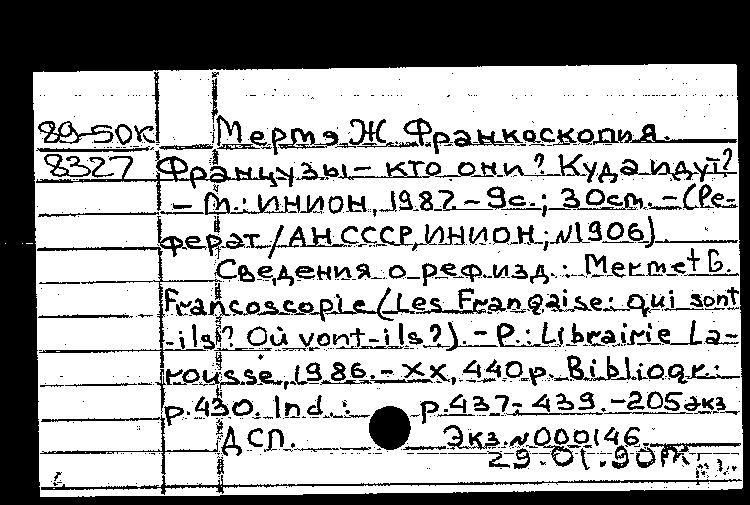 89-50К Мертэ Ж Франкоскопия.
8327 Французы - кто они? Куда идут?
- М.: ИНИОН, 1987 - 9с.; 30cm. - (Ре-
ферат / АН СССР, ИНИОН; N1906).
Сведения о реф. изд.: Mermet G.
Francoscopie (Les Française: qui sont
-ils? Où vont-ils?). - P.: Librairie La-
rousse, 1986. - XX, 440p. Bibliogr.:
p.430. Ind.: p.437-439. - 205экз
ДСП. Экз. N000146
29.01.90